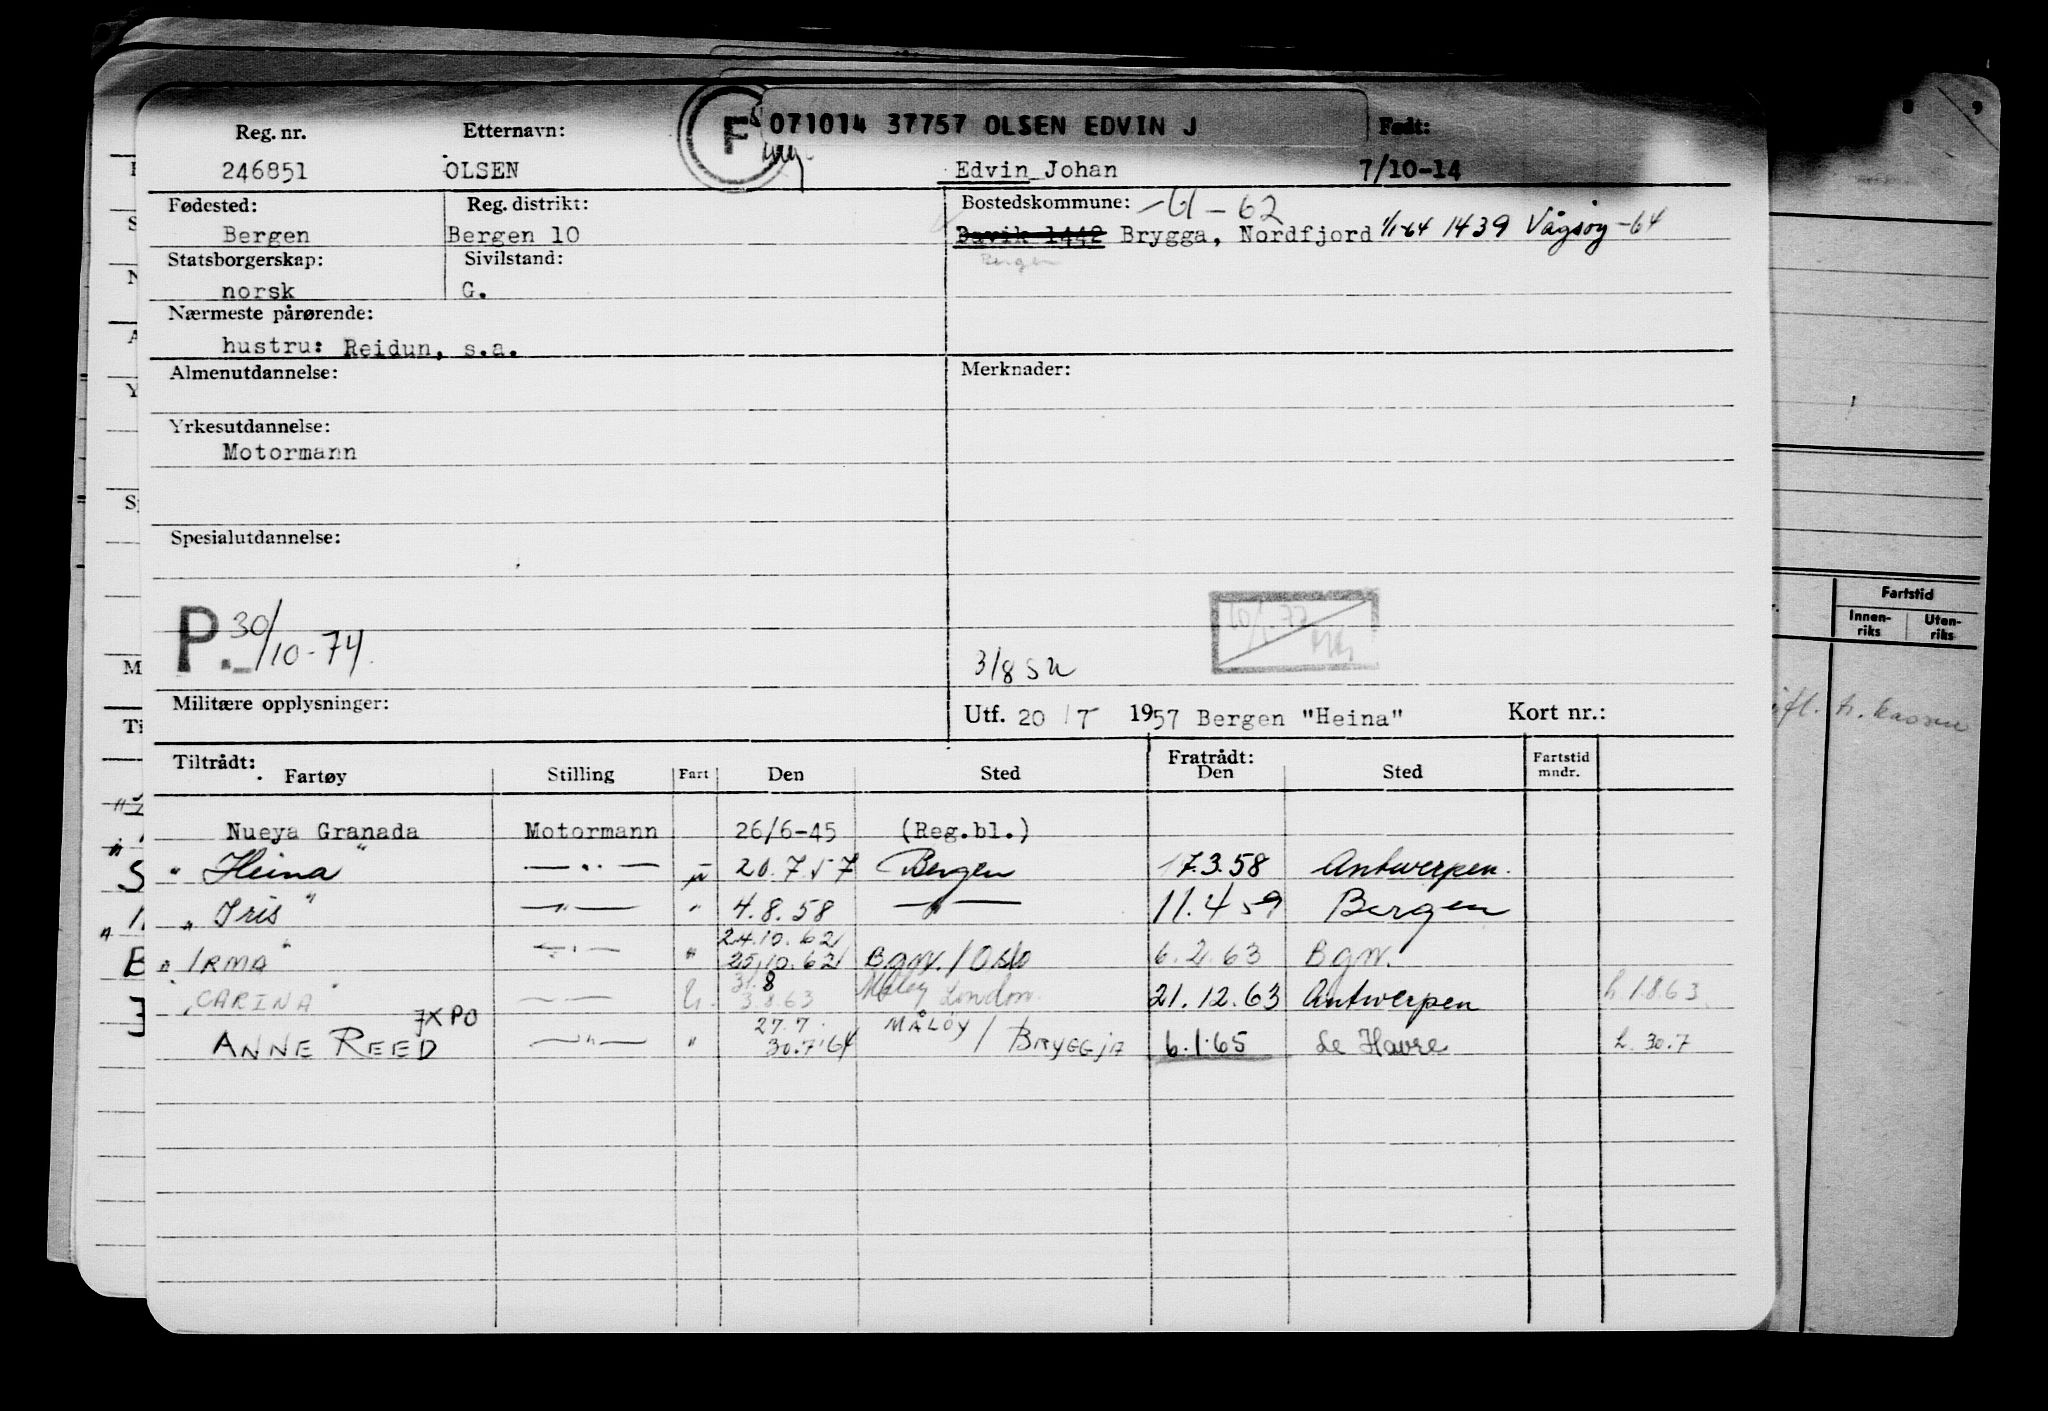 071014 37757 OLSEN EDVIN J
F
Reg. nr. Etternavn: Født:
246851 OLSEN Edvin Johan 7/10-14
Fødested: Reg. distrikt: Bostedskommune: -61-62
Bergen Bergen 10 Davik 1442 Brygga, Nordfjord 1/1-64 1439 Vågsøy -64
Bergen
Statsborgerskap: Sivilstand:
norsk G.
Nærmeste pårørende:
hustru: Reidun, s.a.
Almenutdannelse: Merknader:
Yrkesutdannelse:
Motormann
Spesialutdannelse:
P. 30/10-74.
3/8 52
Militære opplysninger: Utf. 20/7 1957 Bergen "Heina" Kort nr.:
Tiltrådt: Fratrådt: Fartstid mndr.
Fartøy Stilling Fart Den Sted Den Sted
Nueya Granada Motormann 26/6-45 (Reg.bl.)
" Heina " — " — 20.7.57 Bergen 17.3.58 Antwerpen.
" Iris " — " — " 4.8.58 — " — 11.4 59 Bergen
24.10.62
" IRMA " — " — " 25.10.62 Bgn. / Oslo 6.2.63 Bgn.
31.8
" CARINA " — " — U. 3.8.63 Måløy London. 21.12.63 Antwerpen h. 1.8.63.
7XPO 27.7. MÅLØY /
ANNE REED — " — " 30.7.64 BRYGGJA 6.1.65 Le Havre h. 30.7
Fartstid
Innen-riks Uten-riks